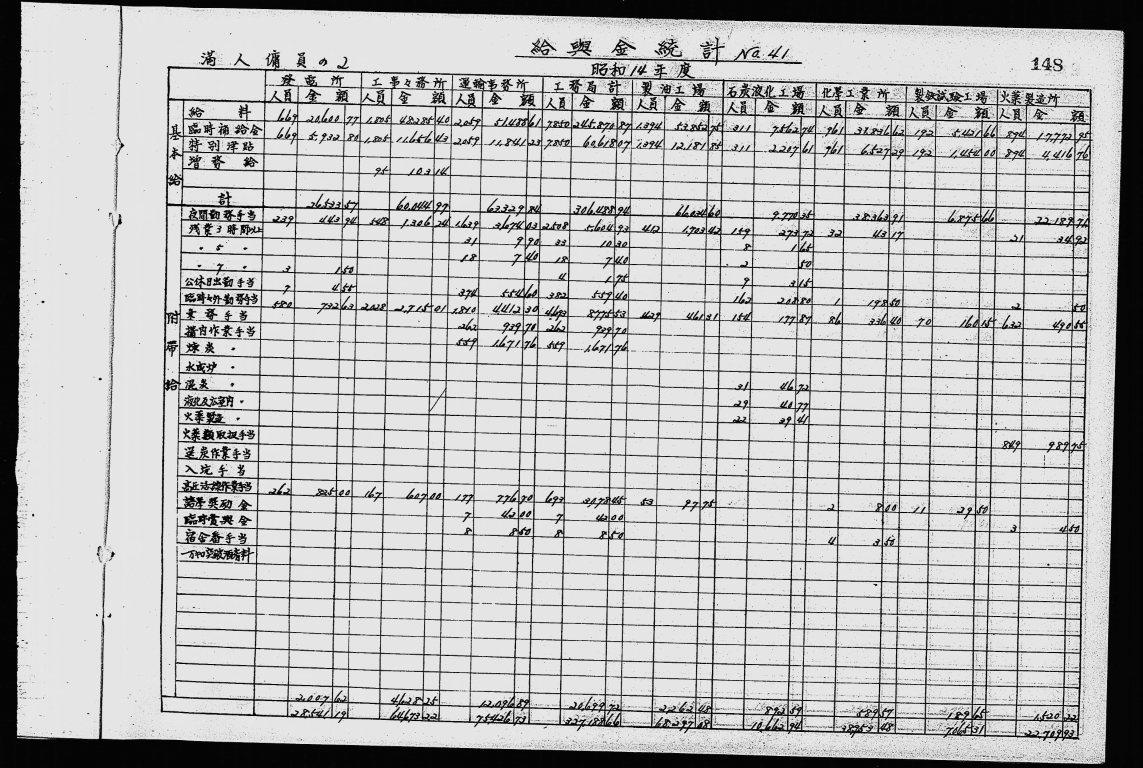 給與金統計 No.41
148
満人傭員の2
昭和14年度
発電所 工事々務所 運輸事務所 工務局計 製油工場 石炭液化工場 化学工業所 製鉄試験工場 火薬製造所
人員 金額 人員 金額 人員 金額 人員 金額 人員 金額 人員 金額 人員 金額 人員 金額 人員 金額
基本給
給料 669 20,600 77 1,805 48,285 40 2,059 51,488 61 7,850 245,870 87 1,394 53,852 75 311 7,562 74 961 33,836 62 192 5,421 66 894 17,772 95
臨時補給金 669 5,932 80 1,805 11,656 43 2,059 11,841 23 7,850 60,618 07 1,394 12,181 85 311 2,207 61 961 6,527 29 192 1,454 00 894 4,416 76
特別津貼
増務給 95 103 14
計 26,533 57 60,044 97 63,329 84 306,488 94 66,034 60 9,770 35 38,363 91 6,875 66 22,189 71
附帯給
夜間勤務手当 239 443 94 548 1,306 24 1,639 3,674 03 2,508 5,604 93 412 1,703 42 159 273 72 32 43 17 21 34 92
残業3時間以上 31 9 90 33 10 30 8 1 65
〃 5 〃 18 7 40 18 7 40 2 50
〃 7 〃 3 1 50 4 1 75 9 3 15
公休日出勤手当 7 4 55 374 554 60 382 559 40 162 208 80 1 198 50 2 50
臨時七外勤務手当 580 732 63 2,028 2,715 01 1,810 4,412 30 4,693 8,775 53 429 461 31 154 177 87 86 336 40 70 160 15 632 490 55
業務手当 262 939 70 262 939 70
構内作業手当 559 1,671 76 559 1,671 76
煉炭 〃
水成炉 〃 31 46 72
混炭 〃 29 40 77
22 39 41
火薬製造 〃
火薬類取扱手当 849 989 75
選炭作業手当
入坑手当
高圧活線作業手当 262 825 00 167 607 00 177 776 70 693 3,078 45 53 97 75
語学奨励金 7 42 00 7 42 00 2 8 00 11 29 50
臨時賞與金 8 8 50 8 8 50 3 4 50
宿舎番手当 4 3 50
2,007 62 4,628 25 12,096 89 20,699 72 2,262 48 892 59 589 57 189 65 1,520 22
28,541 19 64,673 22 75,426 73 327,188 66 68,297 08 10,662 94 38,953 48 7,065 31 22,709 93